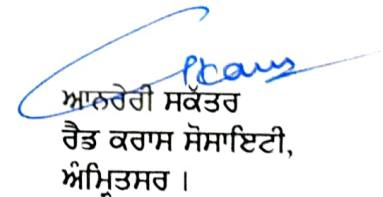 ਆਨਰੇਰੀ ਸਕੱਤਰ
ਰੈਡ ਕਰਾਸ ਸੋਸਾਇਟੀ,
ਅੰਮ੍ਰਿਤਸਰ ।